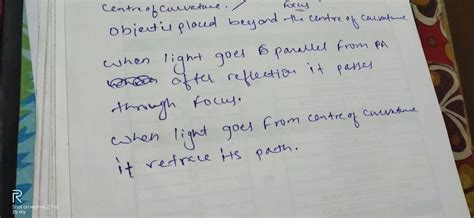 Centre of curvature.
focus
object is placed beyond the centre of curvature
when light goes parallel from PA
after reflection it passes
through focus.
when light goes from centre of curvature
it retrace its path.
R
Shot on realme
By my